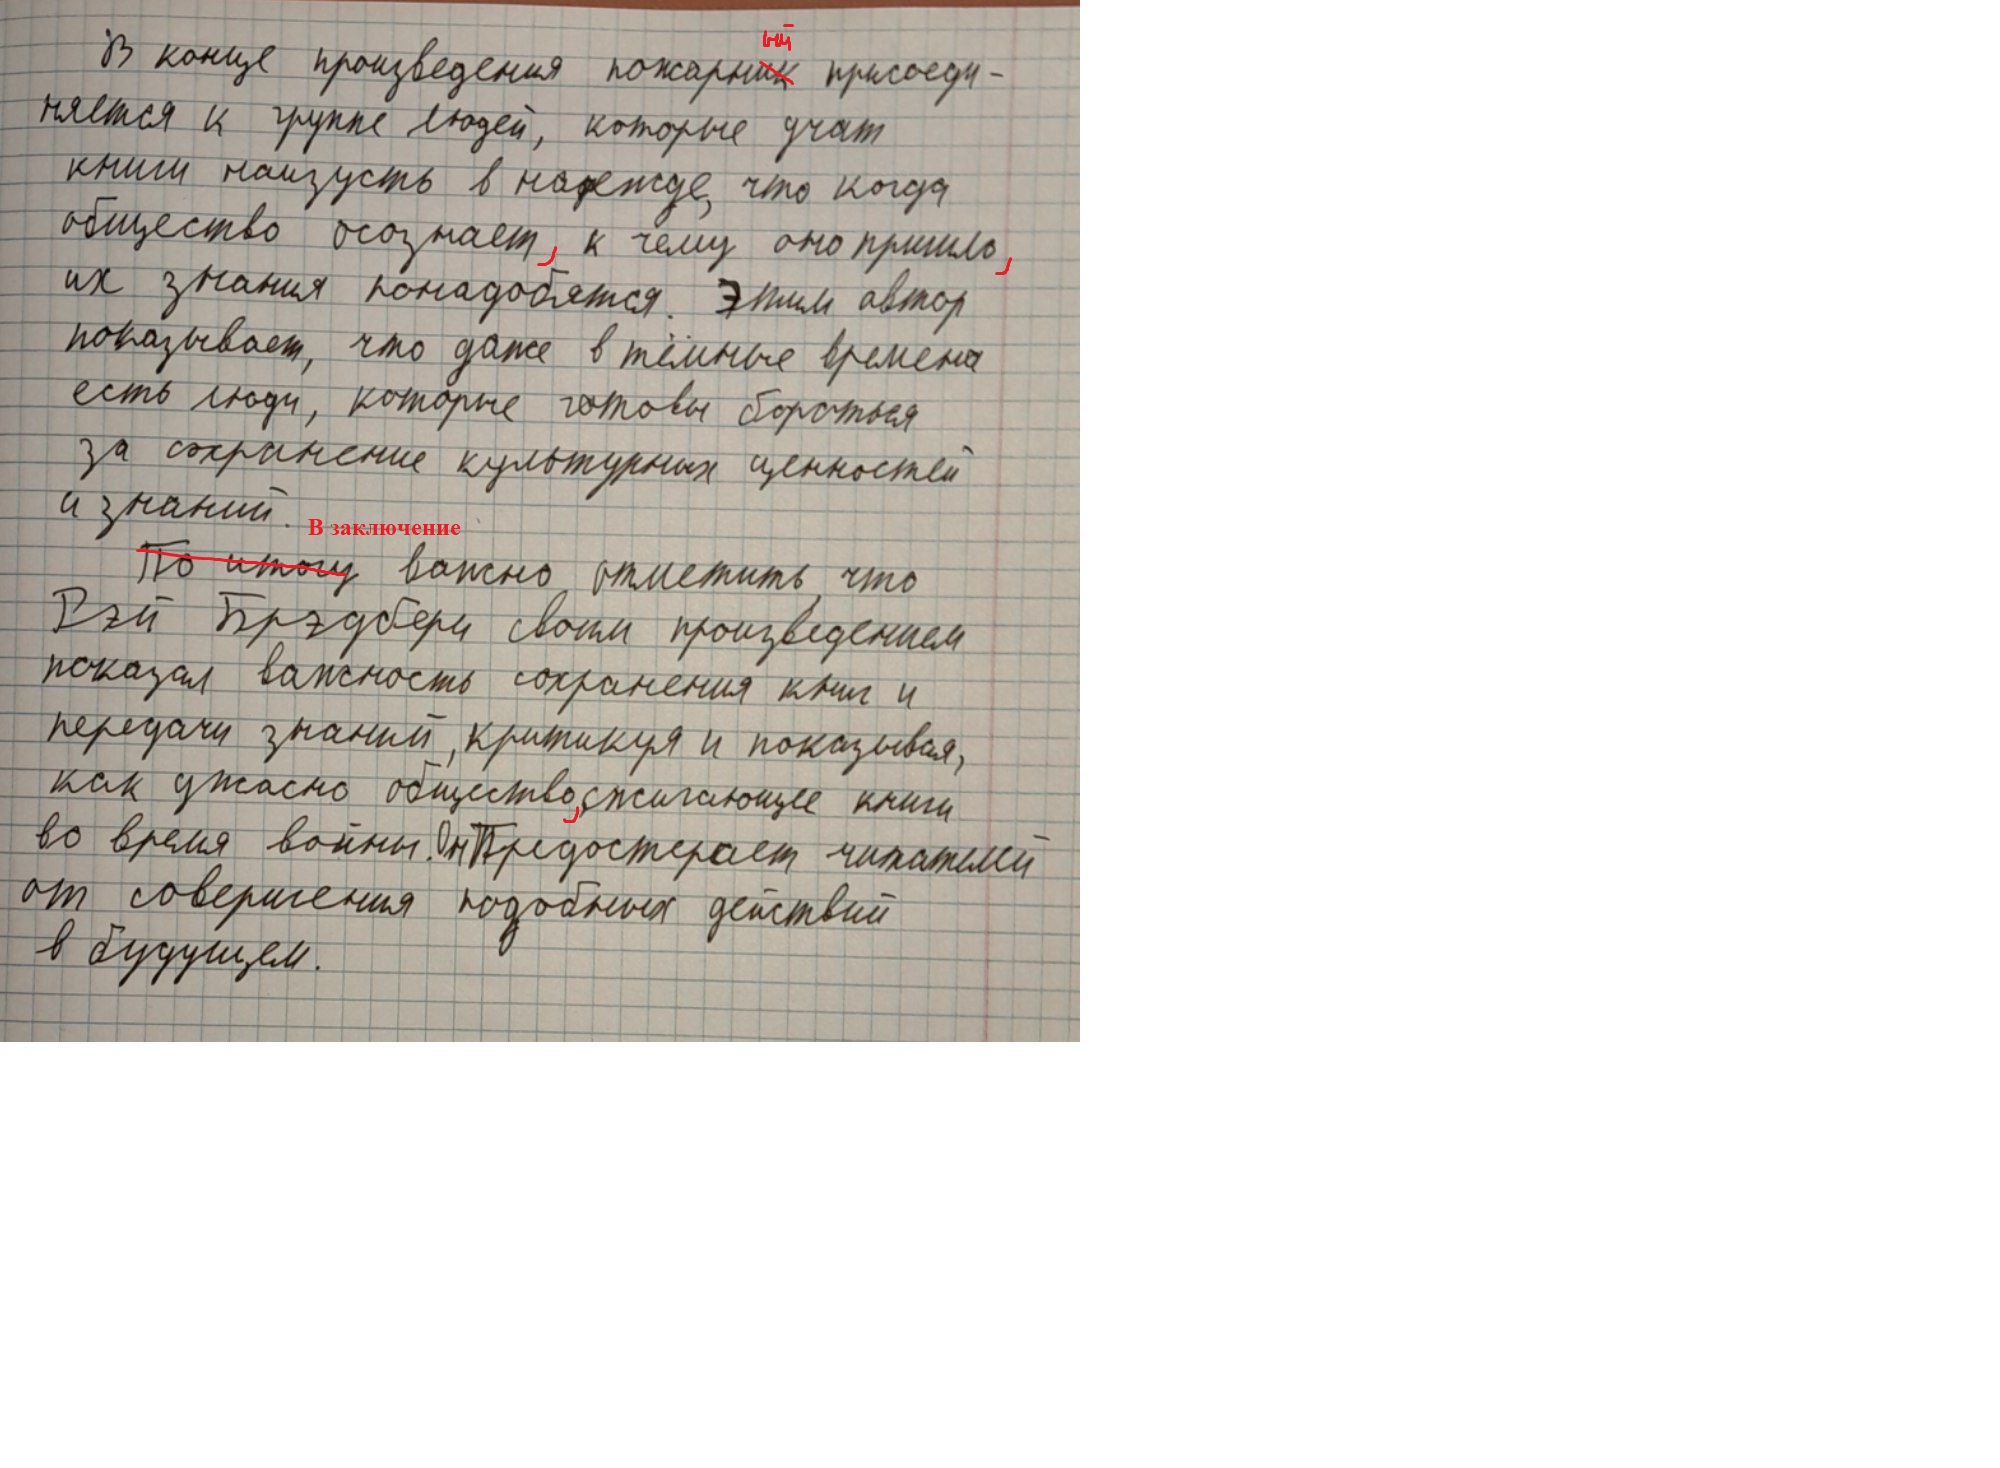 ый
В конце произведения пожарник присоеди-
няется к группе людей, которые учат
книги наизусть в надежде, что когда
общество осознает, к чему оно пришло,
их знания понадобятся. Этим автор
показывает, что даже в тёмные времена
есть люди, которые готовы бороться
за сохранение культурных ценностей
и знаний.
В заключение
По итогу важно отметить, что
Рэй Брэдбери своим произведением
показал важность сохранения книг и
передачи знаний, критикуя и показывая,
как ужасно общество, сжигающее книги
во время войны. Он Предостерегает читателей
от совершения подобных действий
в будущем.